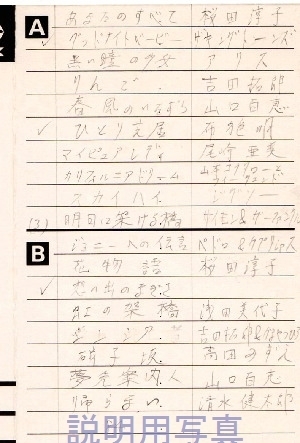 A
あなたのすべて 桜田淳子
グッドナイトベービー ザキングトーンズ
黒い瞳の少女 アリス
りんご 吉田拓郎
春風のいたずら 山口百恵
✓ ひとり芝居 布施明
マイピュアレディ 尾崎亜美
カリフォルニアドリーム
スカイハイ ジグソー
(3) 明日に架ける橋 サイモン&ガーファンクル
B
ジョニーへの伝言 ペドロ&カプリシャス
花物語 桜田淳子
✓ 想い出のまきさ
虹の架橋 浅田美代子
吉田拓郎&かまやつひろし
硝子坂 高田みづえ
夢先案内人 山口百恵
帰らない 清水健太郎
説明用写真